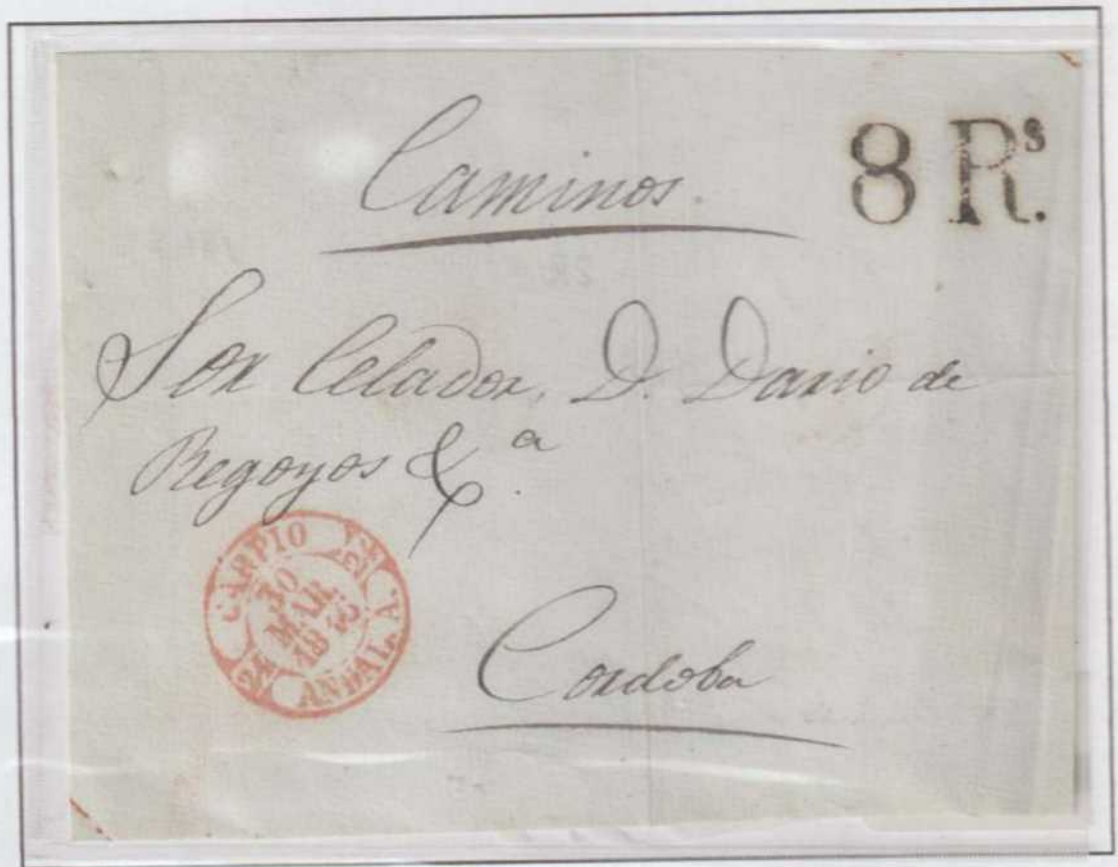 Caminos.
8 Rs.
Sor Celador, D. Dario de
Regoyos &a.
CARPIO
30
MAR
ANDAL. A
Cordoba